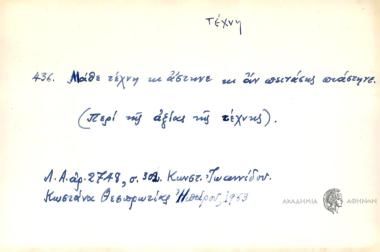 τέχνη
436. Μάθε τέχνη κι ἄστηνε κι ἄν πεινάσης πιάστηνε.
(Περί τῆς ἀξίας τῆς τέχνης).
Λ.Α. ἀρ. 2748, σ. 302, Κωνστ. Ἰωαννίδου.
Κωστάνα Θεσπρωτίας Ἠπείρου, 1963
ΑΚΑΔΗΜΙΑ ΑΘΗΝΩΝ